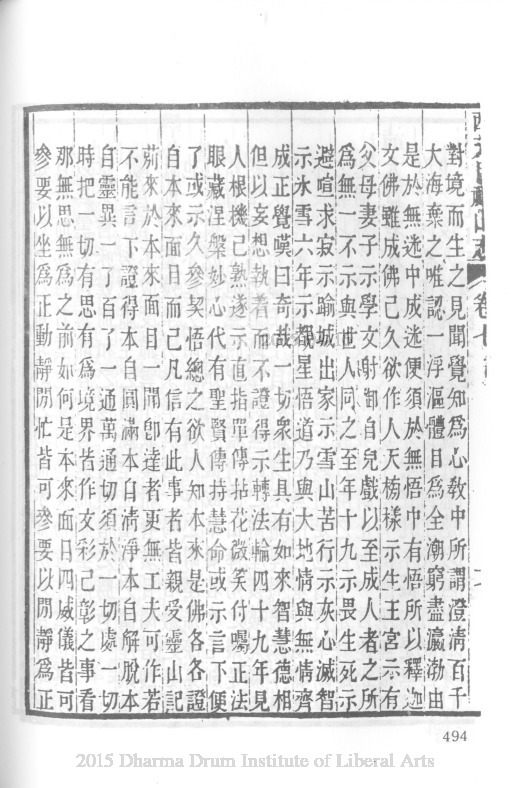 對境而生之見聞覺知爲心敎中所謂澄淸百千
大海棄之唯認一浮漚體目爲全潮窮盡瀛渤由
是於無迷中成迷便須於無悟中有悟所以釋迦
文佛雖成佛已久欲作人天榜樣示生王宮示有
父母妻子示學文射御自兒戲以至成人者之所
爲無一不示與世人同之至年十九示畏生死示
避喧求寂示踰城出家示雪山苦行示灰心滅智
示氷雪六年示覩星悟道乃與大地情與無情齊
成正覺嘆曰奇哉一切衆生具有如來智慧德相
但以妄想執着而不證得示轉法輪四十九年見
人根機已熟遂示直指單傳拈花微笑付囑正法
眼藏涅槃妙心代有聖賢傳持慧命或示言下便
了或示久參契悟總之欲人知本來是佛各各證
自本來面目而已凡信有此事者皆親受靈山記
莂來於本來面目一聞卽達者更無工夫可作若
不能言下證得本自圓滿本自淸淨本自解脫本
自靈異一了百了一通萬通切須於一切處一切
時把一切有思有爲境界皆作文彩已彰之事看
那無思無爲之前如何是本來面目四威儀皆可
參要以坐爲正動靜閒忙皆可參要以閒靜爲正
卷七
494
2015 Dharma Drum Institute of Liberal Arts